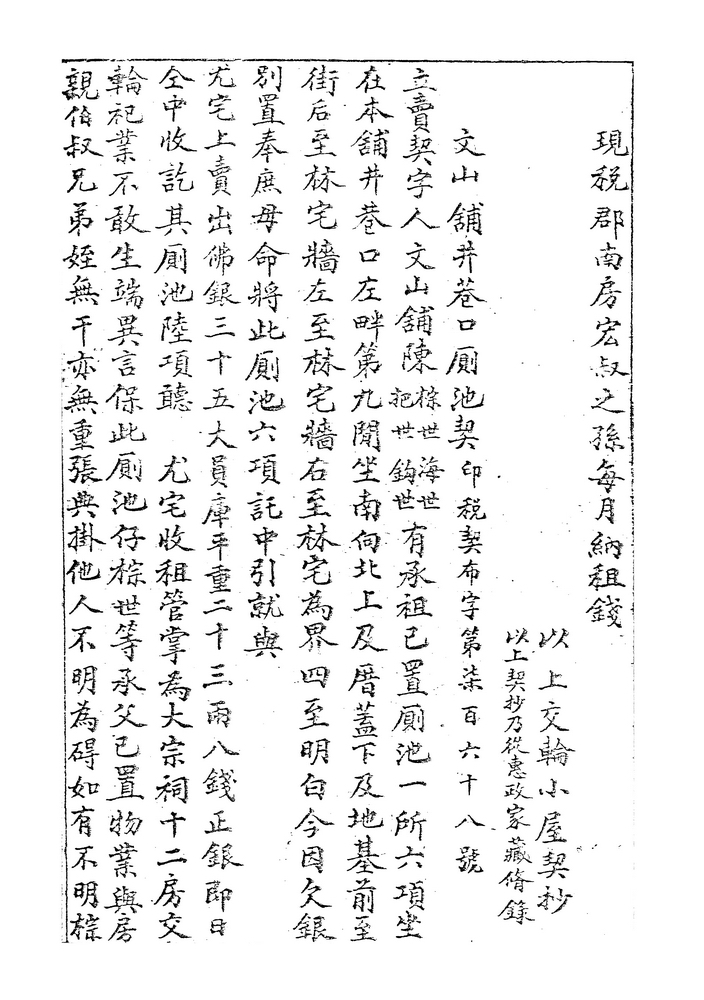 現稅郡南房宏叔之孫每月納租錢
以上交輪小屋契抄
以上契抄乃從惠政家藏脩錄
文山舖井巷口厠池契印稅契布字第柒百六十八號
立賣契字人文山舖陳棕世海世把世鈎世有承祖已置厠池一所六項坐
在本舖井巷口左畔第九間坐南向北上及厝蓋下及地基前至
街后至林宅牆左至林宅牆右至林宅為界四至明白今因欠銀
別置奉庶母命將此厠池六項託中引就與
尤宅上賣出佛銀三十五大員庫平重二十三兩八錢正銀即日
仝中收訖其厠池陸項聽　尤宅收租管掌為大宗祠十二房交
輪祀業不敢生端異言保此厠池仔棕世等承父已置物業與房
親伯叔兄弟姪無干亦無重張典掛他人不明為碍如有不明棕